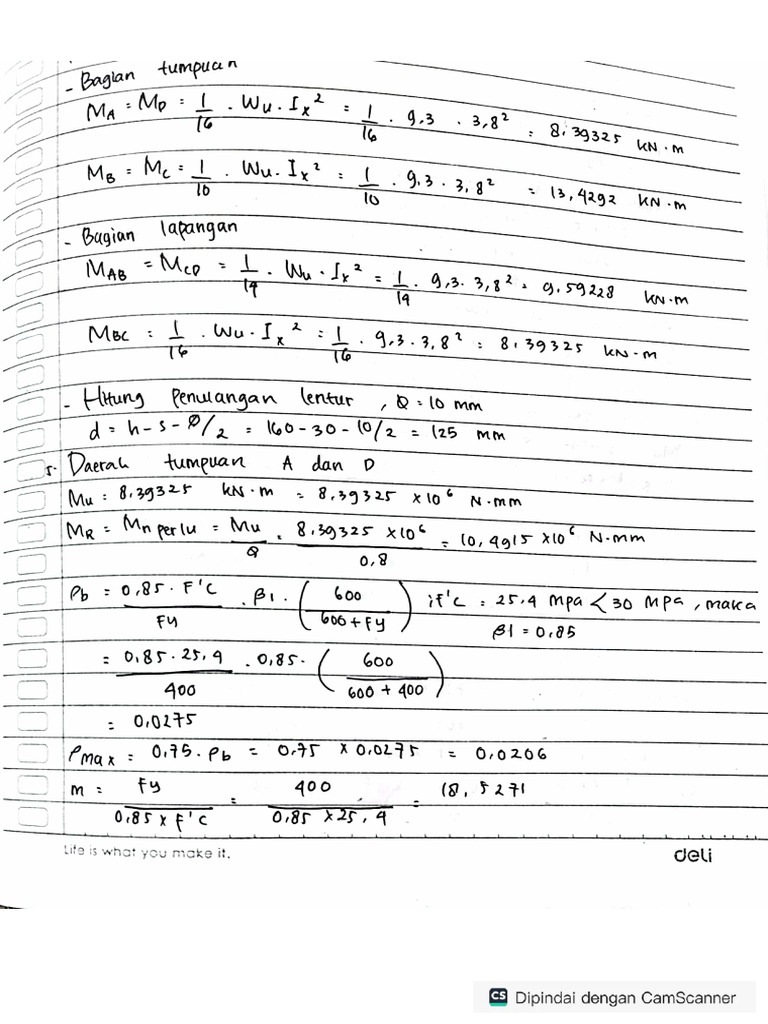 - Bagian tumpuan
MA = MD = 1/16 . Wu . Ix² = 1/16 . 9,3 . 3,8² = 8,39325 kN.m
MB = MC = 1/10 . Wu . Ix² = 1/10 . 9,3 . 3,8² = 13,4292 kN.m
- Bagian lapangan
MAB = MCD = 1/14 . Wu . Ix² = 1/14 . 9,3 . 3,8² = 9,59228 kN.m
MBC = 1/16 . Wu . Ix² = 1/16 . 9,3 . 3,8² = 8,39325 kN.m
- Hitung penulangan lentur , Ø = 10 mm
d = h - s - Ø/2 = 160 - 30 - 10/2 = 125 mm
5. Daerah tumpuan A dan D
Mu = 8,39325 kN.m = 8,39325 x10⁶ N.mm
MR = Mn perlu = Mu/Ø = 8,39325 x10⁶/0,8 = 10,4915 x10⁶ N.mm
ρb = 0,85 . F'C/Fy . β1 . (600/600 + Fy) ; F'C = 25,4 Mpa < 30 MPa, maka
β1 = 0,85
= 0,85 . 25,4/400 . 0,85 . (600/600 + 400)
= 0,0275
ρmax = 0,75 . ρb = 0,75 x 0,0275 = 0,0206
m = Fy/0,85 x F'C = 400/0,85 x 25,4 = 18,5271
Life is what you make it.
deli
CS Dipindai dengan CamScanner